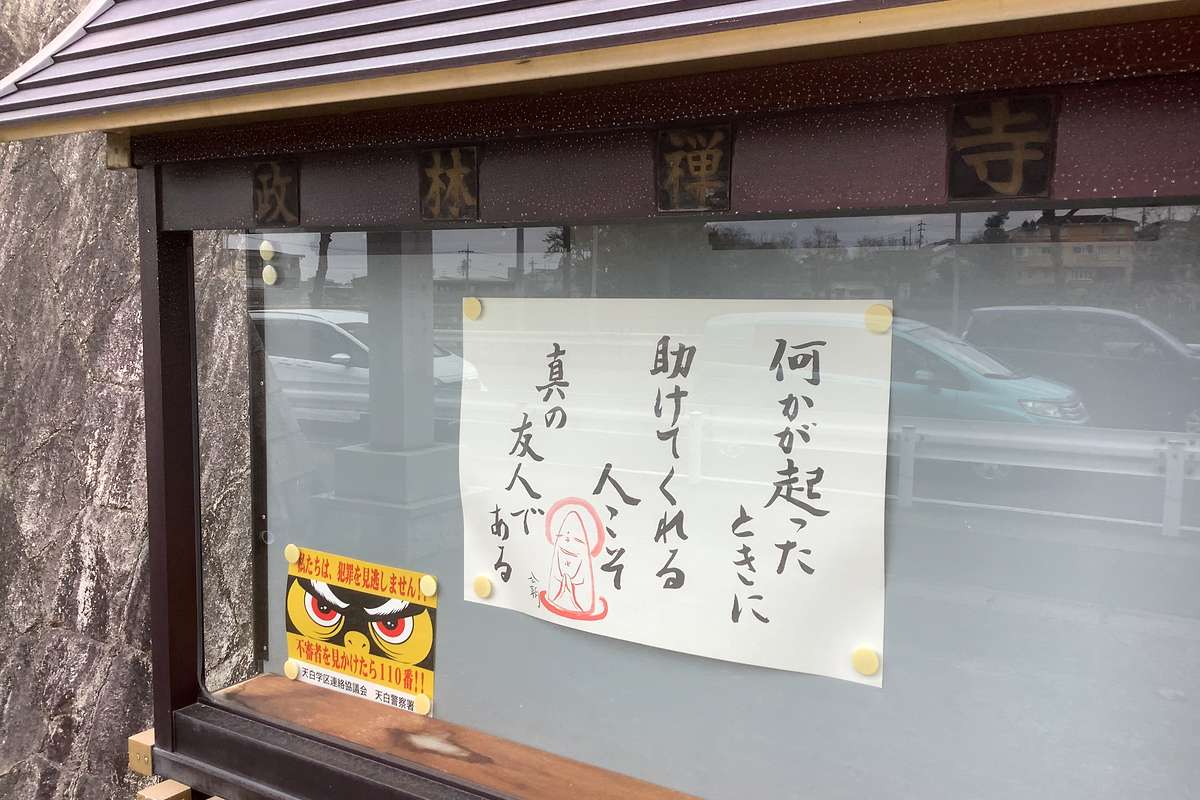 政林禅寺
何かが起った
ときに
助けてくれる
人こそ
真の
友人で
ある
私たちは、犯罪を見逃しません!!
不審者を見かけたら110番!!
天白学区連絡協議会 天白警察署